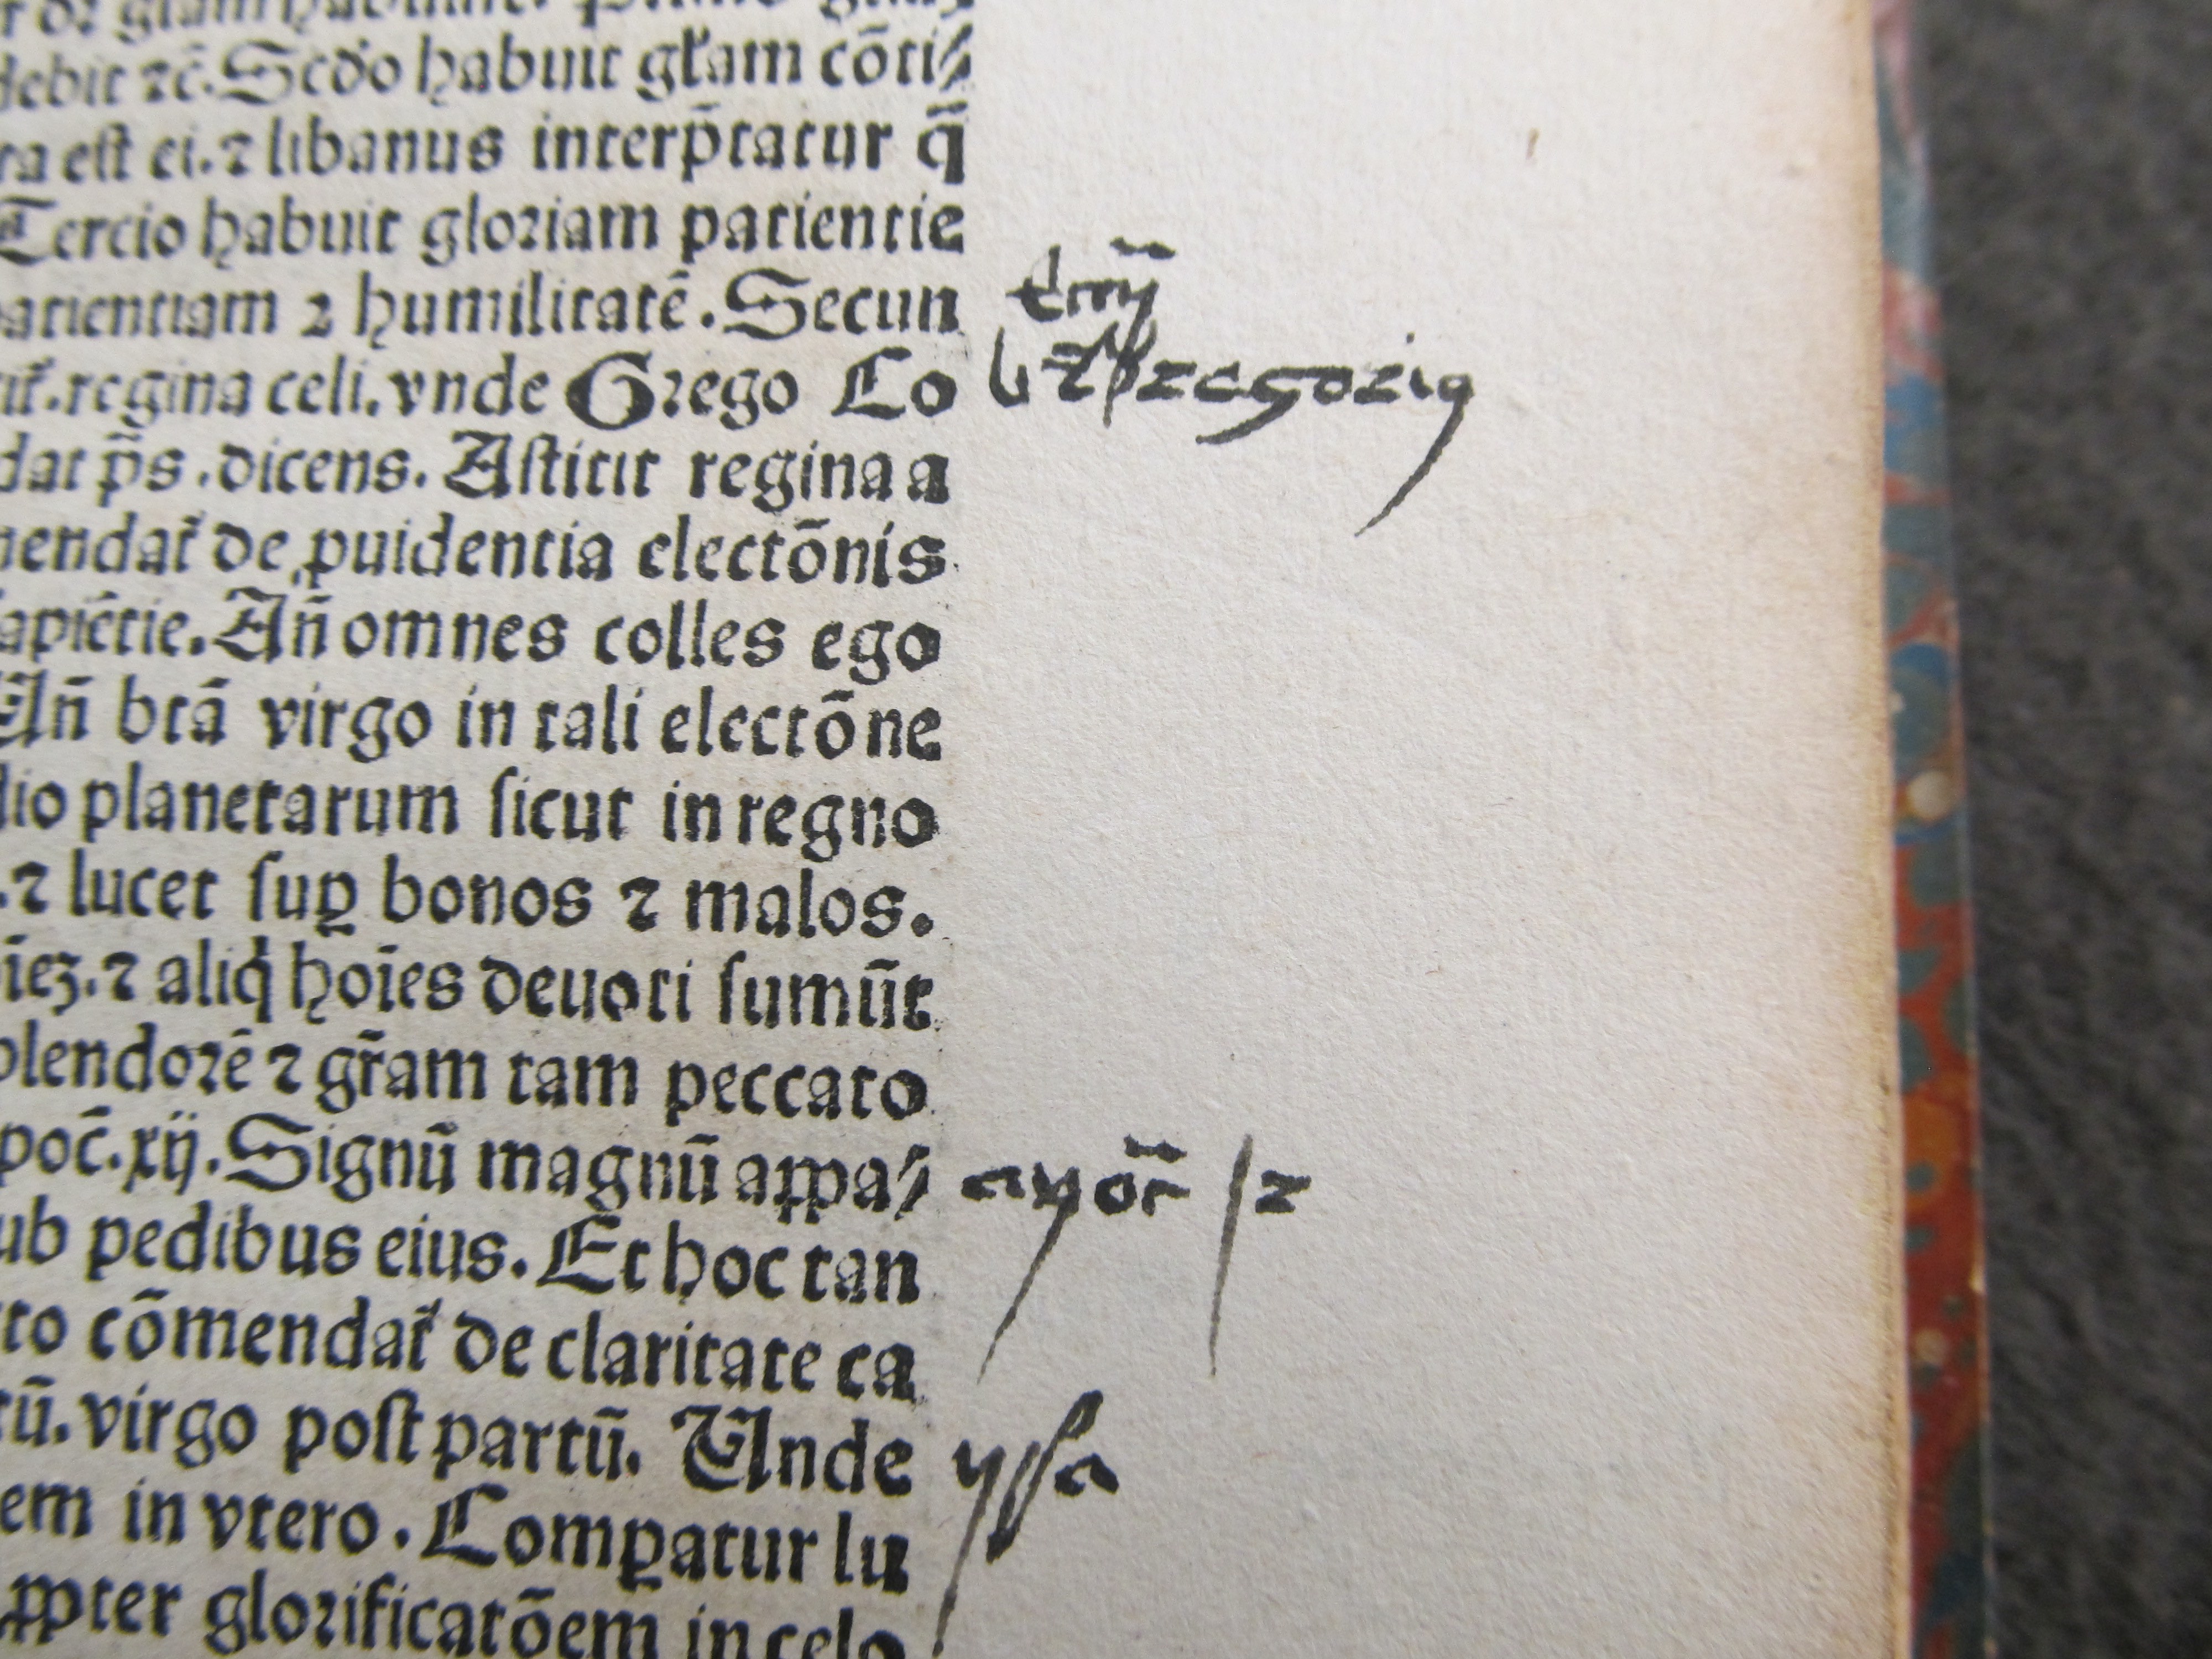 debit ⁊c̄. Scd̄o habuit gl̄am cōti⸗
ra est ei. ⁊ libanus interp̄tatur q̄
Tercio habuit gloriam patientie
patientiam ⁊ humilitatē. Secun
regina celi. vnde Grego Lo
Gregorius
dat p̄s. dicens. Astitit regina a
mendat̄ de ꝓuidentia electōnis
sapiētie. An̄ omnes colles ego
An̄ btā virgo in tali electōne
dio planetarum sicut in regno
. ⁊ lucet suꝑ bonos ⁊ malos.
⁊ aliq̇ hoīes deuoti sumūt
plendorē ⁊ gr̄am tam peccato
poc̄. xij. Signū magnū aꝑpa⸗ apoc̄ 12
ub pedibus eius. Et hoc tan
to cōmendat̄ de claritate ca
tū. virgo post partū. Unde ysa
em in vtero. Comꝑatur lu
ꝓpter glorificatōem in celo